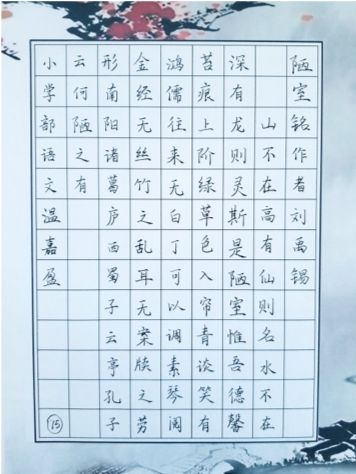 陋室铭作者刘禹锡
山不在高有仙则名水不在
深有龙则灵斯是陋室惟吾德馨
苔痕上阶绿草色入帘青谈笑有
鸿儒往来无白丁可以调素琴阅
金经无丝竹之乱耳无案牍之劳
形南阳诸葛庐西蜀子云亭孔子
云何陋之有
小学部语文温嘉盈
15